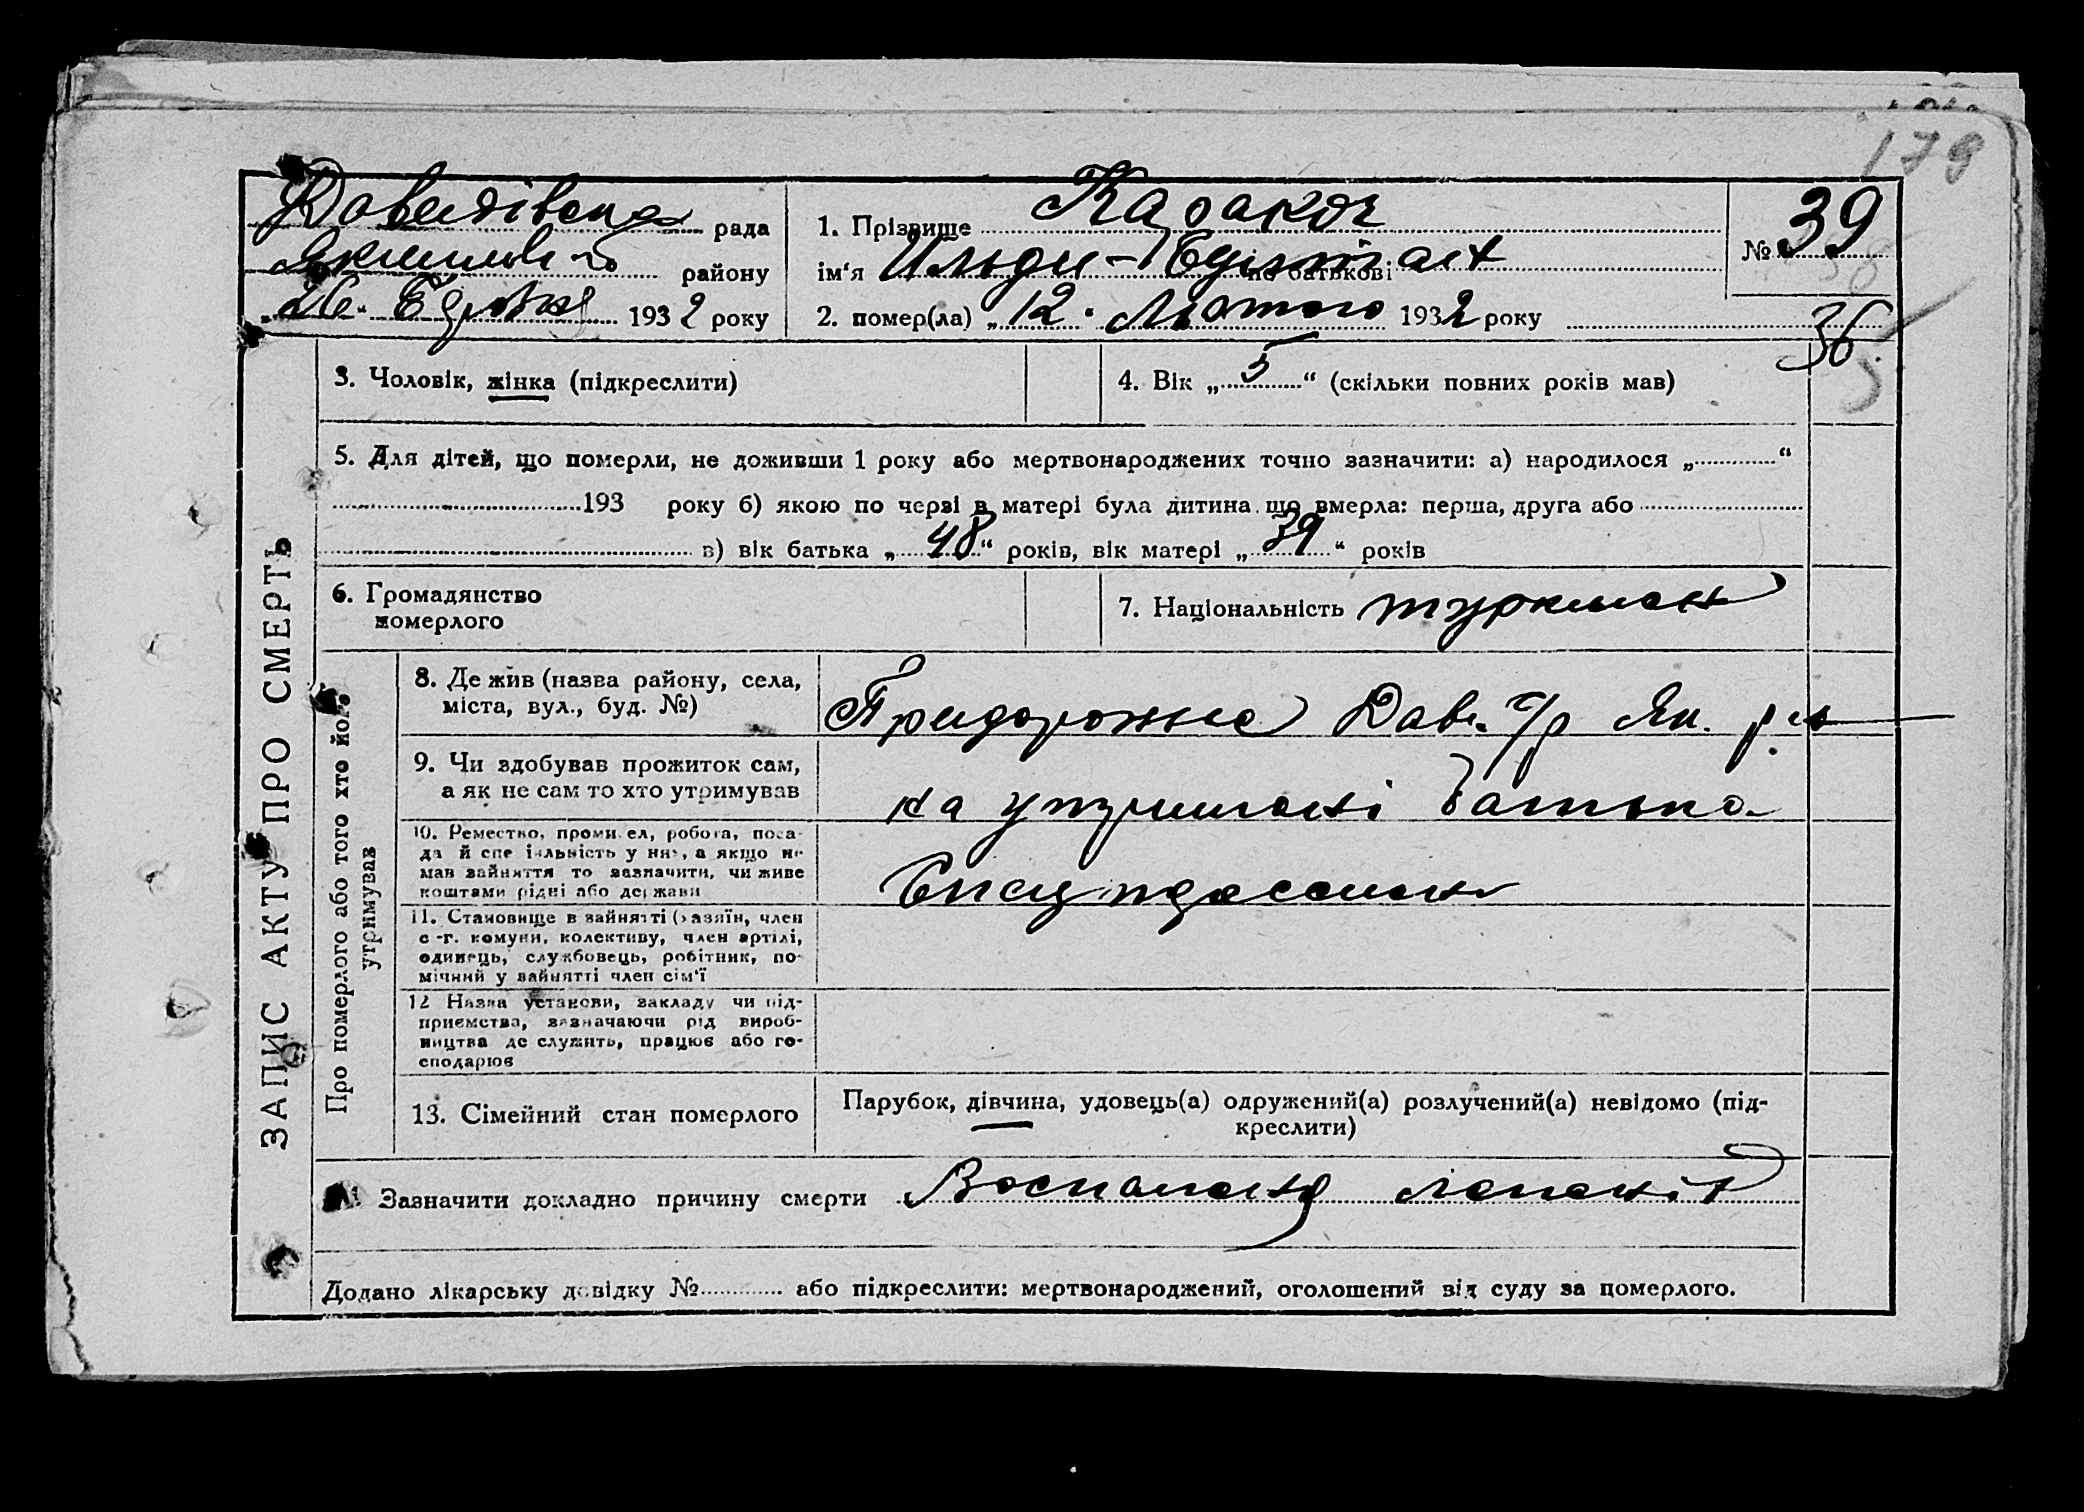 179
Давидівська рада
Якимівс-го району
„26“ Березня 1932 року
1. Прізвище
ім‘я по батькові
2. помер(ла) „12“ Лютого 1932 року
№ 39
38
36
3. Чоловік, жінка (підкреслити)
4. Вік „ 5 “ (скільки повних років мав)
5. Для дітей, що померли, не доживши 1 року або мертвонароджених точно зазначити: а) народилося „ “
193 року б) якою по черзі в матері була дитина що вмерла: перша, друга або
в) вік батька „ 48 “ років, вік матері „ 39 “ років
6. Громадянство
померлого
7. Національність туркмен
ЗАПИС АКТУ ПРО СМЕРТЬ
Про померлого або того хто його
утримував
8. Де жив (назва району, села,
міста, вул., буд. №)
Придорожнє Дав. с/р Як. р-н
9. Чи здобував прожиток сам,
а як не сам то хто утримував
на утриманні батька
10. Ремество, промисел, робота, поса-
да й спеціяльність у них, а якщо не
мав зайняття то зазначити, чи живе
коштами рідні або держави
11. Становище в зайнятті (хазяїн, член
с.-г. комуни, колективу, член артілі,
одинець, службовець, робітник, по-
мічний у зайнятті член сім‘ї
12 Назва установи, закладу чи під-
приємства, зазначаючи рід вироб-
ництва де служить, працює або го-
сподарює
13. Сімейний стан померлого
Парубок, дівчина, удовець(а) одружений(а) розлучений(а) невідомо (під-
креслити)
Зазначити докладно причину смерти Воспаление легких
Додано лікарську довідку № або підкреслити: мертвонароджений, оголошений від суду за померлого.